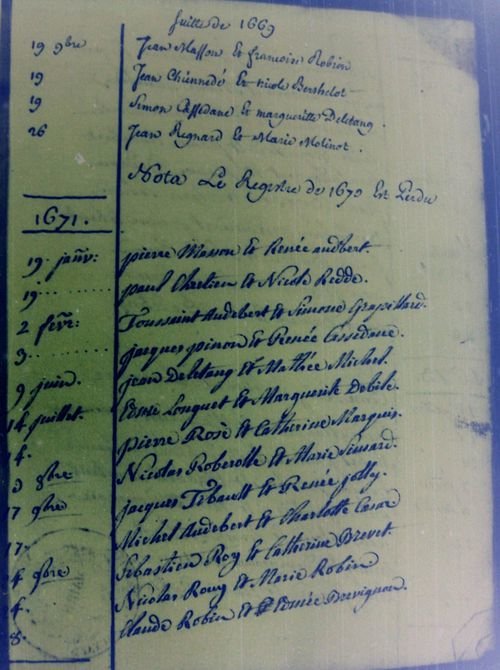 Suitte de 1669
19 9bre Jean Masson Et francoise Robion
19 Jean Chennedé Et nicole Berthelot
19 Simon Cassedane et margueritte Deletang.
26 Jean Regnard Et Marie Molinot.
Nota Le Registre de 1670 Est Perdu
1671.
19. janv: pierre Masson Et Renée audbert.
19. paul Chretien Et Nicole Redde.
2 fevr: Toussaint Audebert Et Simone
3. jacques pinon Et Renée Cassedane.
9 juin. jean Deletang Et Mathée Michel.
14 juillet. Edme Longuet Et Marguerite Debile.
4. pierre Rosé Et Catherine Marquis.
8bre Nicolas Roberolle Et Marie Simard.
17 9bre jacques Tibault Et Renée jolly.
17. Michel Audebert Et Charlotte
4 9bre Sébastien Roy Et Catherine Brevet.
4. Nicolas Rouy Et Marie Robin
8. Claude Robin Et Edmée Brevignon.